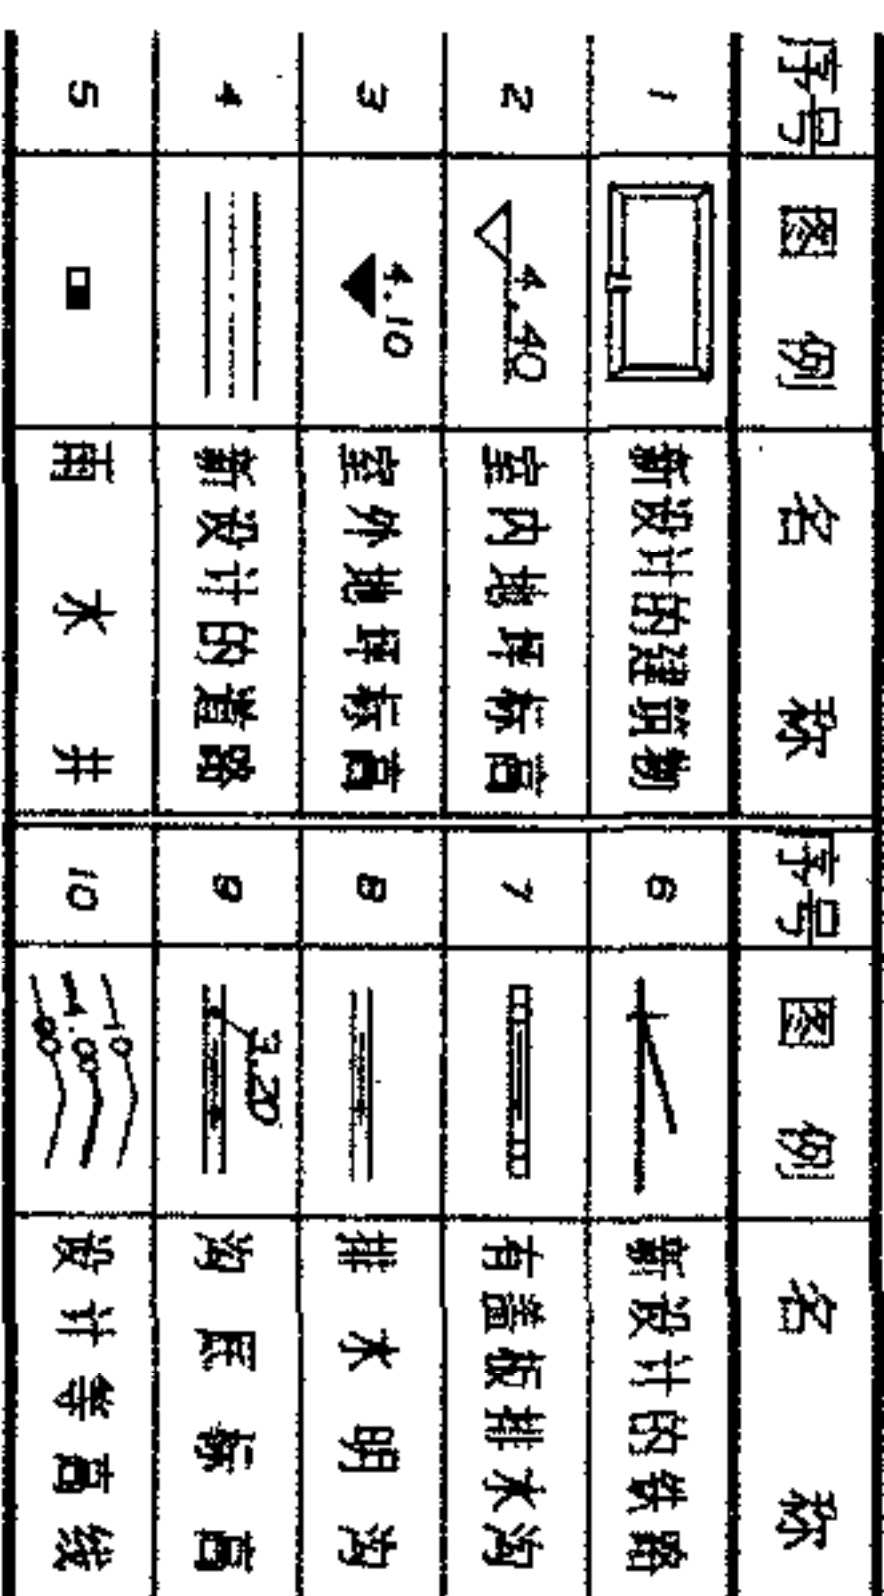 序号 图例 名称 序号 图例 名称
1 新设计的建筑物 6 新设计的铁路
2 4.40 室内地坪标高 7 有盖板排水沟
3 4.10 室外地坪标高 8 排水明沟
4 新设计的道路 9 3.20 沟底标高
5 雨水井 10 .10 4.00 .90 设计等高线